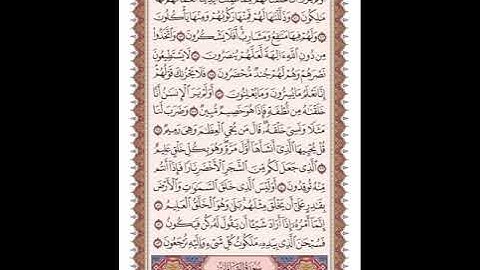 مَٰلِكُونَ ۝٧١ وَذَلَّلْنَٰهَا لَهُمْ فَمِنْهَا رَكُوبُهُمْ وَمِنْهَا يَأْكُلُونَ
۝٧٢ وَلَهُمْ فِيهَا مَنَٰفِعُ وَمَشَارِبُ أَفَلَا يَشْكُرُونَ ۝٧٣ وَٱتَّخَذُوا۟
مِن دُونِ ٱللَّهِ ءَالِهَةً لَّعَلَّهُمْ يُنصَرُونَ ۝٧٤ لَا يَسْتَطِيعُونَ
نَصْرَهُمْ وَهُمْ لَهُمْ جُندٌ مُّحْضَرُونَ ۝٧٥ فَلَا يَحْزُنكَ قَوْلُهُمْ
إِنَّا نَعْلَمُ مَا يُسِرُّونَ وَمَا يُعْلِنُونَ ۝٧٦ أَوَلَمْ يَرَ ٱلْإِنسَٰنُ أَنَّا
خَلَقْنَٰهُ مِن نُّطْفَةٍ فَإِذَا هُوَ خَصِيمٌ مُّبِينٌ ۝٧٧ وَضَرَبَ لَنَا
مَثَلًا وَنَسِىَ خَلْقَهُۥ قَالَ مَن يُحْىِ ٱلْعِظَٰمَ وَهِىَ رَمِيمٌ ۝٧٨
قُلْ يُحْيِيهَا ٱلَّذِىٓ أَنشَأَهَآ أَوَّلَ مَرَّةٍ وَهُوَ بِكُلِّ خَلْقٍ عَلِيمٌ
۝٧٩ ٱلَّذِى جَعَلَ لَكُم مِّنَ ٱلشَّجَرِ ٱلْأَخْضَرِ نَارًا فَإِذَآ أَنتُم
مِّنْهُ تُوقِدُونَ ۝٨٠ أَوَلَيْسَ ٱلَّذِى خَلَقَ ٱلسَّمَٰوَٰتِ وَٱلْأَرْضَ
بِقَٰدِرٍ عَلَىٰٓ أَن يَخْلُقَ مِثْلَهُم بَلَىٰ وَهُوَ ٱلْخَلَّٰقُ ٱلْعَلِيمُ ۝٨١
إِنَّمَآ أَمْرُهُۥٓ إِذَآ أَرَادَ شَيْـًٔا أَن يَقُولَ لَهُۥ كُن فَيَكُونُ ۝٨٢
فَسُبْحَٰنَ ٱلَّذِى بِيَدِهِۦ مَلَكُوتُ كُلِّ شَىْءٍ وَإِلَيْهِ تُرْجَعُونَ ۝٨٣